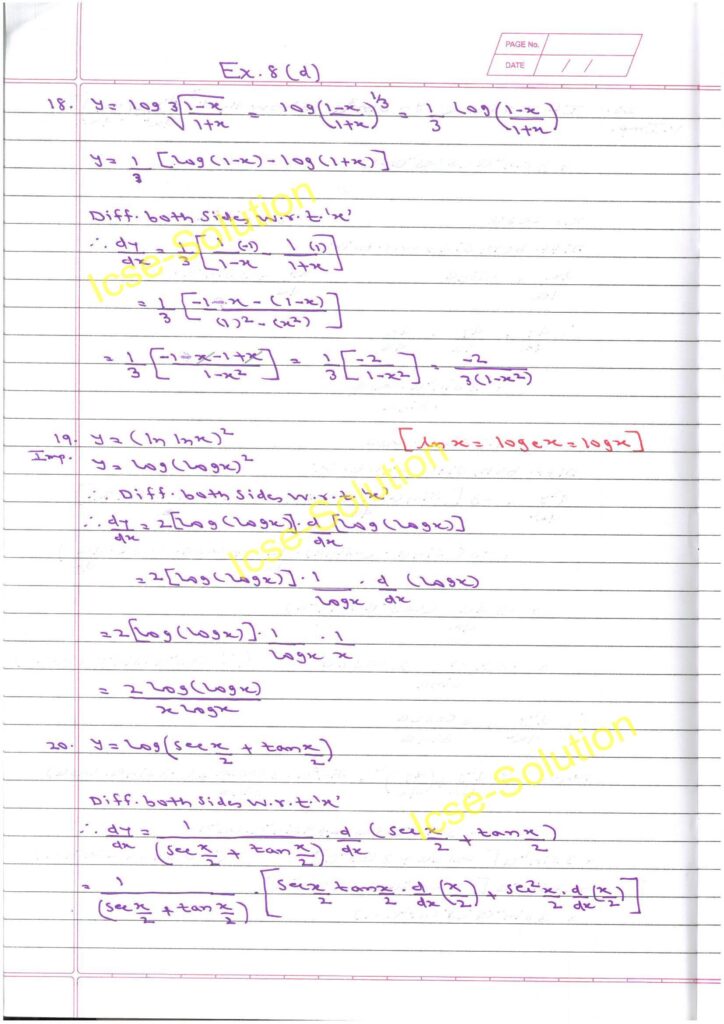 PAGE No.
DATE / /
Ex. 8 (d)
18. y = log ∛((1-x)/(1+x)) = log((1-x)/(1+x))^(1/3) = 1/3 log((1-x)/(1+x))
y = 1/3 [log(1-x) - log(1+x)]
Diff. both Sides w.r.t. 'x'
∴ dy/dx = 1/3 [1/(1-x) (-1) - 1/(1+x) (1)]
= 1/3 [(-1-x-(1-x))/((1)² - (x²))]
= 1/3 [(-1-x-1+x)/(1-x²)] = 1/3 [-2/(1-x²)] = -2/(3(1-x²))
19. y = (ln lnx)² [ln x = logex = logx]
Imp. y = log(logx)²
∴ Diff. both Sides w.r.t. 'x'
∴ dy/dx = 2[log(logx)] · d/dx [log(logx)]
= 2[log(logx)] · 1/logx · d/dx (logx)
= 2[log(logx)] · 1/logx · 1/x
= 2 log(logx)/(x logx)
20. y = log(sec x/2 + tan x/2)
Diff. both Sides w.r.t. 'x'
∴ dy/dx = 1/(sec x/2 + tan x/2) · d/dx (sec x/2 + tan x/2)
= 1/(sec x/2 + tan x/2) · [sec x/2 tan x/2 · d/dx (x/2) + sec² x/2 · d/dx (x/2)]
Icse-Solution
Icse-Solution
Icse-Solution